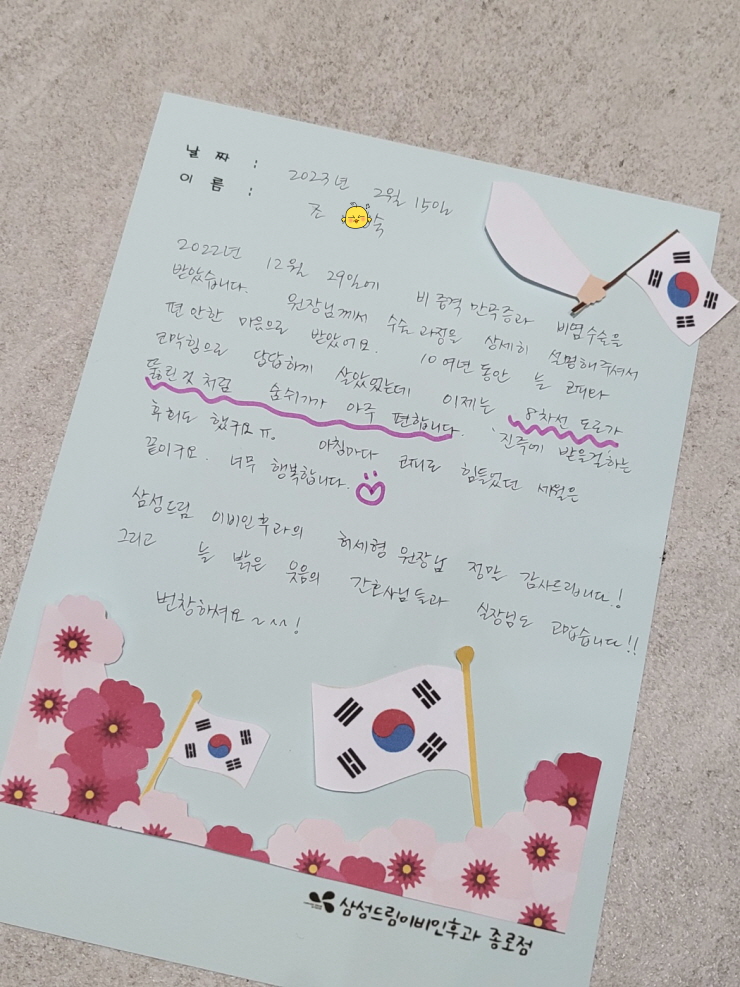 날 짜 : 2023년 2월 15일
이 름 : 조 숙
2022년 12월 29일에 비중격 만곡증과 비염수술을
받았습니다. 원장님께서 수술 과정을 상세히 설명해주셔서
편안한 마음으로 받았어요. 10여년 동안 늘 코피와
코막힘으로 답답하게 살았었는데 이제는 8차선 도로가
뚫린것처럼 숨쉬기가 아주 편합니다. '진즉에 받을걸'하는
후회도 했구요ㅠ. 아침마다 코피로 힘들었던 세월은
끝이구요. 너무 행복합니다.
삼성드림 이비인후과의 허세형 원장님 정말 감사드립니다!
그리고 늘 밝은 웃음의 간호사님들과 실장님도 고맙습니다!!
번창하셔요~~~!
삼성드림이비인후과 종로점